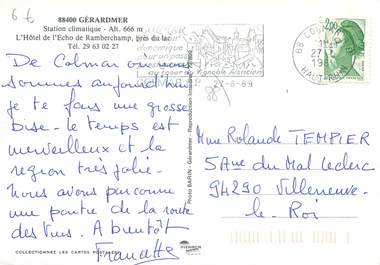 6 €
88400 GÉRARDMER
Station climatique - Alt. 666 m
L'Hôtel de l'Echo de Ramberchamp, près du lac
Tél. 29 63 02 27
De Colmar où nous
sommes aujourd'hui
je te fais une grosse
bise - le temps est
merveilleux et la
région très jolie -
nous avons parcouru
une partie de la route
des Vins. A bientôt
Francette
COLLECTIONNEZ LES CARTES POSTALES
Photo BAJRIN - Gérardmer - Reproduction
68 COLMAR
27
HAUT-RHIN
2,00
du Vignoble Alsacien
27-6-89
Mme Rolande TEMPIER
5 Ave du Mal Leclerc
94290 Villeneuve-
le-Roi